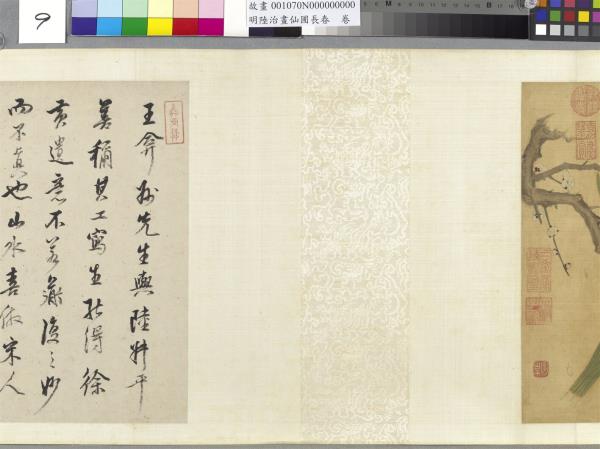 9
故畫 001070N000000000
明陸治畫仙圃長春 卷
王弇州先生與陸叔平
善稱其工寫生能得徐
黃遺意不若道復之妙
而不真也山水喜倣宋人